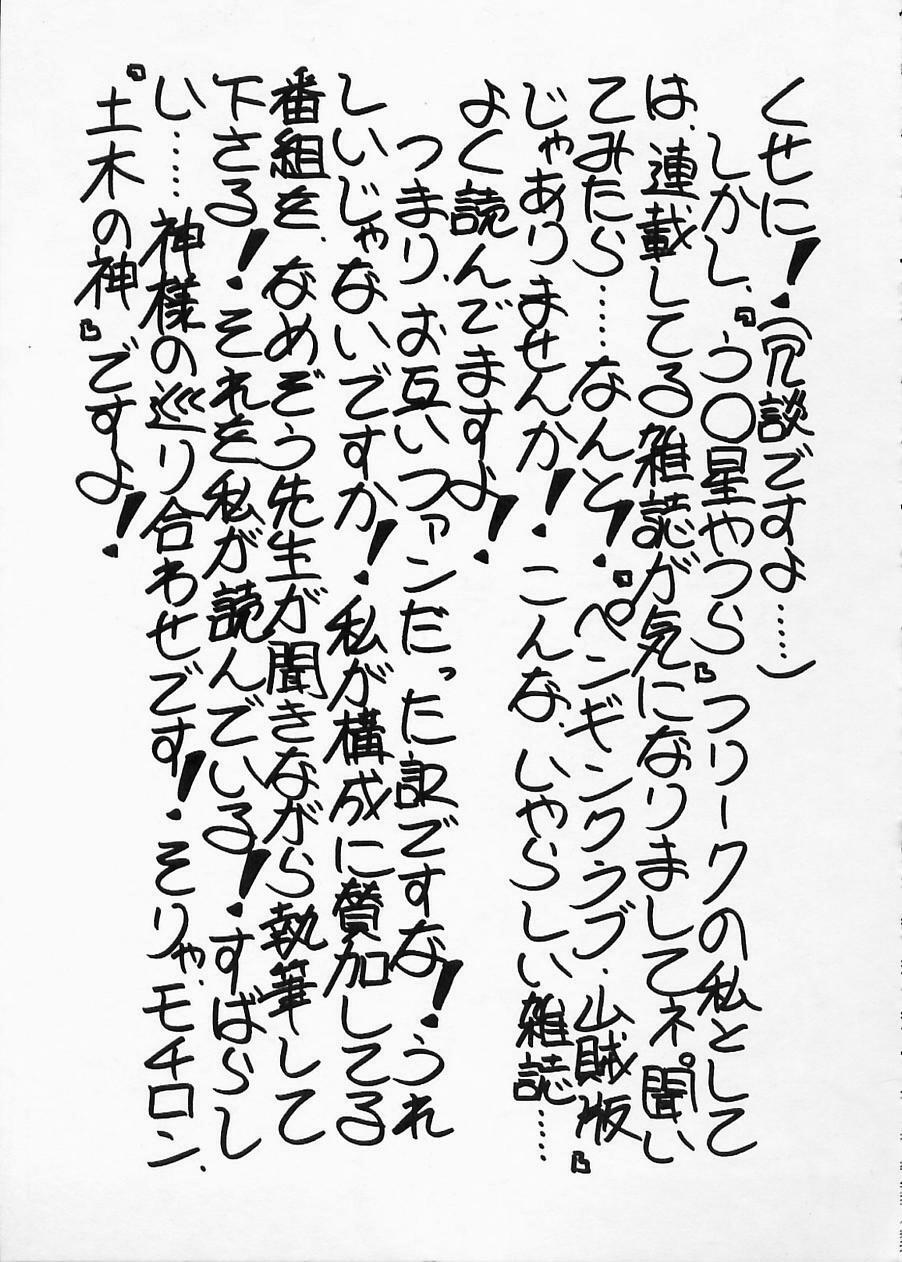 くせに！（冗談ですよ……）
しかし、『う〇星やつら』フリークの私として
は、連載してる雑誌が気になりましてネ。聞い
てみたら……なんと！『ペンギンクラブ・山賊版』
じゃありませんか！こんな、いやらしい雑誌……
よく読んでますよ！
つまり、お互いファンだった訳ですな！うれ
しいじゃないですか！私が構成に賛加してる
番組を、なめぞう先生が聞きながら執筆して
下さる！それを私が読んでいる！すばらし
い……神様の巡り合わせです！そりゃ、モチロン、
『土木の神』ですよ！